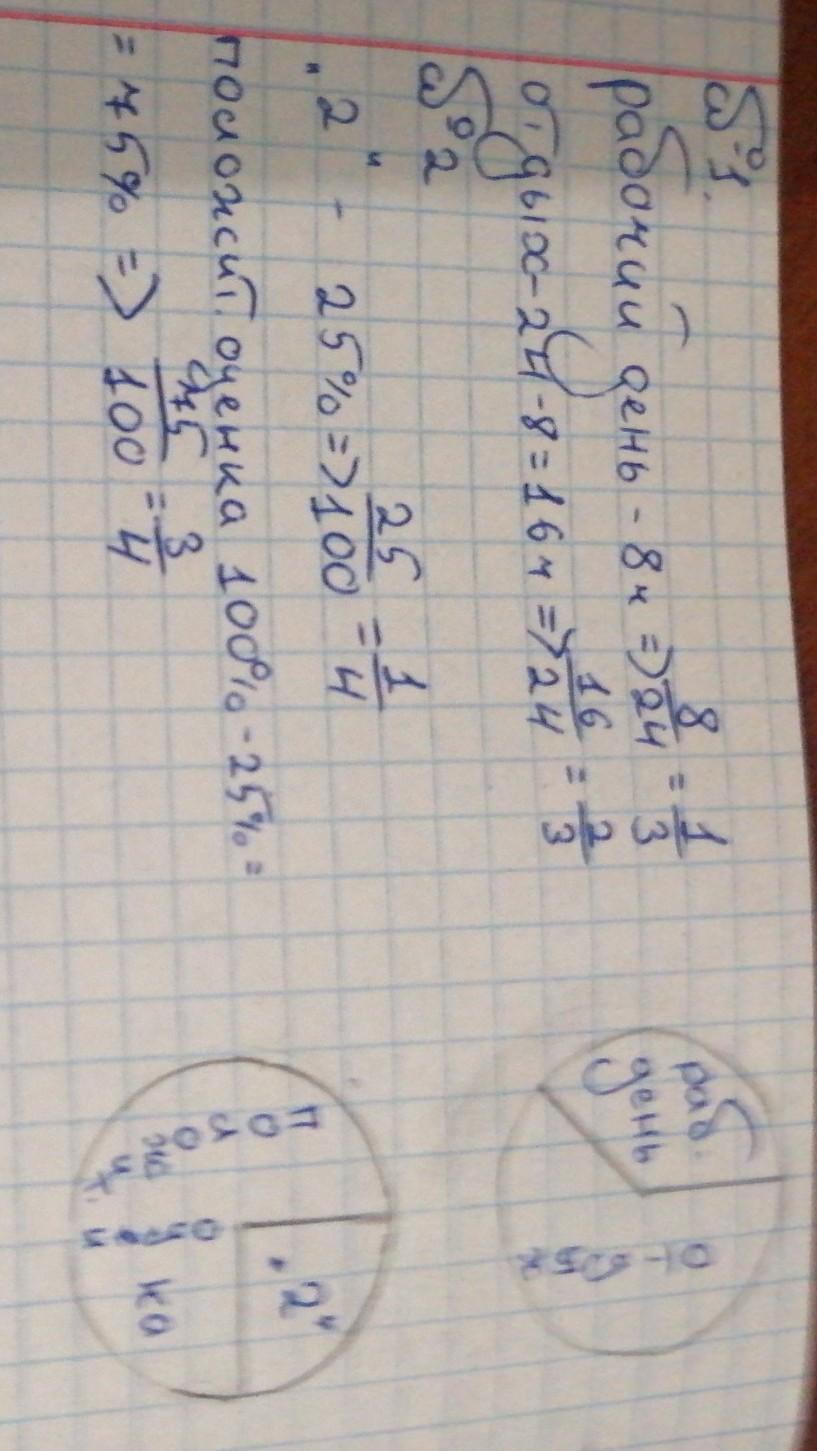 №1.
рабочий день - 8ч => 8/24 = 1/3
отдых - 24 - 8 = 16ч => 16/24 = 2/3
№2
"2" - 25% => 25/100 = 1/4
положит. оценка 100% - 25% =
= 75% => 75/100 = 3/4
раб.
день
отдых
"2"
положит.
оценка